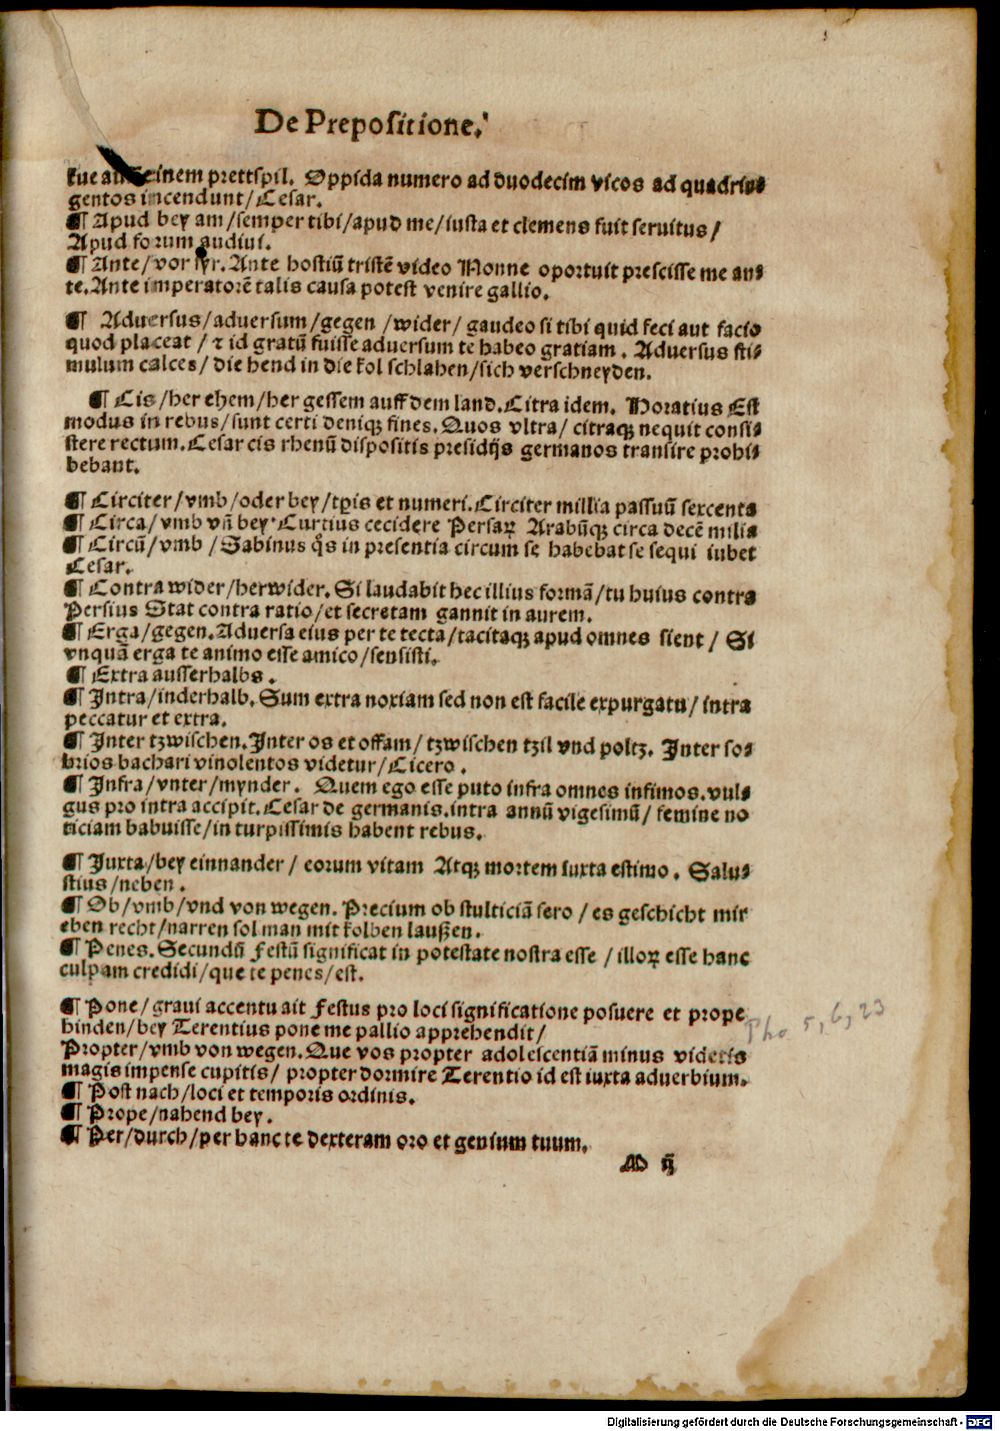 De Prepositione.
kue auff einem prettspil. Oppida numero ad duodecim vicos ad quadrin⸗
gentos incendunt/Cesar.
¶ Apud bey am/semper tibi/apud me/iusta et clemens fuit seruitus/
Apud forum audiui.
¶ Ante/vor fyr. Ante hostiū tristē video Nonne oportuit prescisse me an⸗
te. Ante imperatorē talis causa potest venire gallio.
¶ Aduersus/aduersum/gegen /wider/ gaudeo si tibi quid feci aut facio
quod placeat /⁊ id gratū fuisse aduersum te habeo gratiam. Aduersus sti⸗
mulum calces/ die hend in die kol schlahen/sich verschneyden.
¶ Cis/her ehem/her gessem auff dem land. Citra idem. Horatius Est
modus in rebus/sunt certi deniqꝫ fines. Quos vltra/ citraqꝫ nequit consi⸗
stere rectum. Cesar cis rhenū dispositis presidijs germanos transire prohi⸗
bebant.
¶ Circiter/vmb/oder bey/tꝑis et numeri. Circiter millia passuū sexcenta
¶ Circa/vmb vñ bey· Curtius cecidere Persaꝝ Arabūqꝫ circa decē milia
¶ Circū/vmb /Sabinus q̊s in presentia circum se habebat se sequi iubet
Cesar.
¶ Contra wider/herwider. Si laudabit hec illius formā/tu huius contra
Persius Stat contra ratio/et secretam gannit in aurem.
¶ Erga/gegen. Aduersa eius per te tecta/tacitaqꝫ apud omnes sient/ Si
vnquā erga te animo esse amico/sensisti.
¶ Extra ausserhalbs.
¶ Intra/inderhalb. Sum extra noxiam sed non est facile expurgatu/intra
peccatur et extra.
¶ Inter tzwischen. Inter os et offam/tzwischen tzil vnd poltz. Inter so⸗
brios bachari vinolentos videtur/Cicero.
¶ Infra/vnter/mynder. Quem ego esse puto infra omnes infimos. vul⸗
gus pro intra accipit. Cesar de germanis. intra annū vigesimū/ femine no
ticiam habuisse/in turpissimis habent rebus.
¶ Juxta/bey einnander/ eorum vitam Atqꝫ mortem iuxta estimo. Salu⸗
stius/neben.
¶ Ob/vmb/vnd von wegen. Precium ob stulticiā fero/es geschicht mir
eben recht/narren sol man mit kolben laußen.
¶ Penes. Secundū Festū significat in potestate nostra esse/illoꝝ esse hanc
culpam credidi/que te penes/est.
¶ Pone/graui accentu ait Festus pro loci significatione posuere et prope
hinden/bey Terentius pone me pallio apprehendit/
Propter/vmb von wegen. Que vos propter adolescentiā minus videtis
magis impense cupitis/ propter dormire Terentio id est iuxta aduerbium.
¶ Post nach/loci et temporis ordinis.
¶ Prope/nahend bey.
¶ Per/durch/per hanc te dexteram oro et genium tuum.
M ij
Pho 5, 6, 23
Digitalisierung gefördert durch die Deutsche Forschungsgemeinschaft - DFG